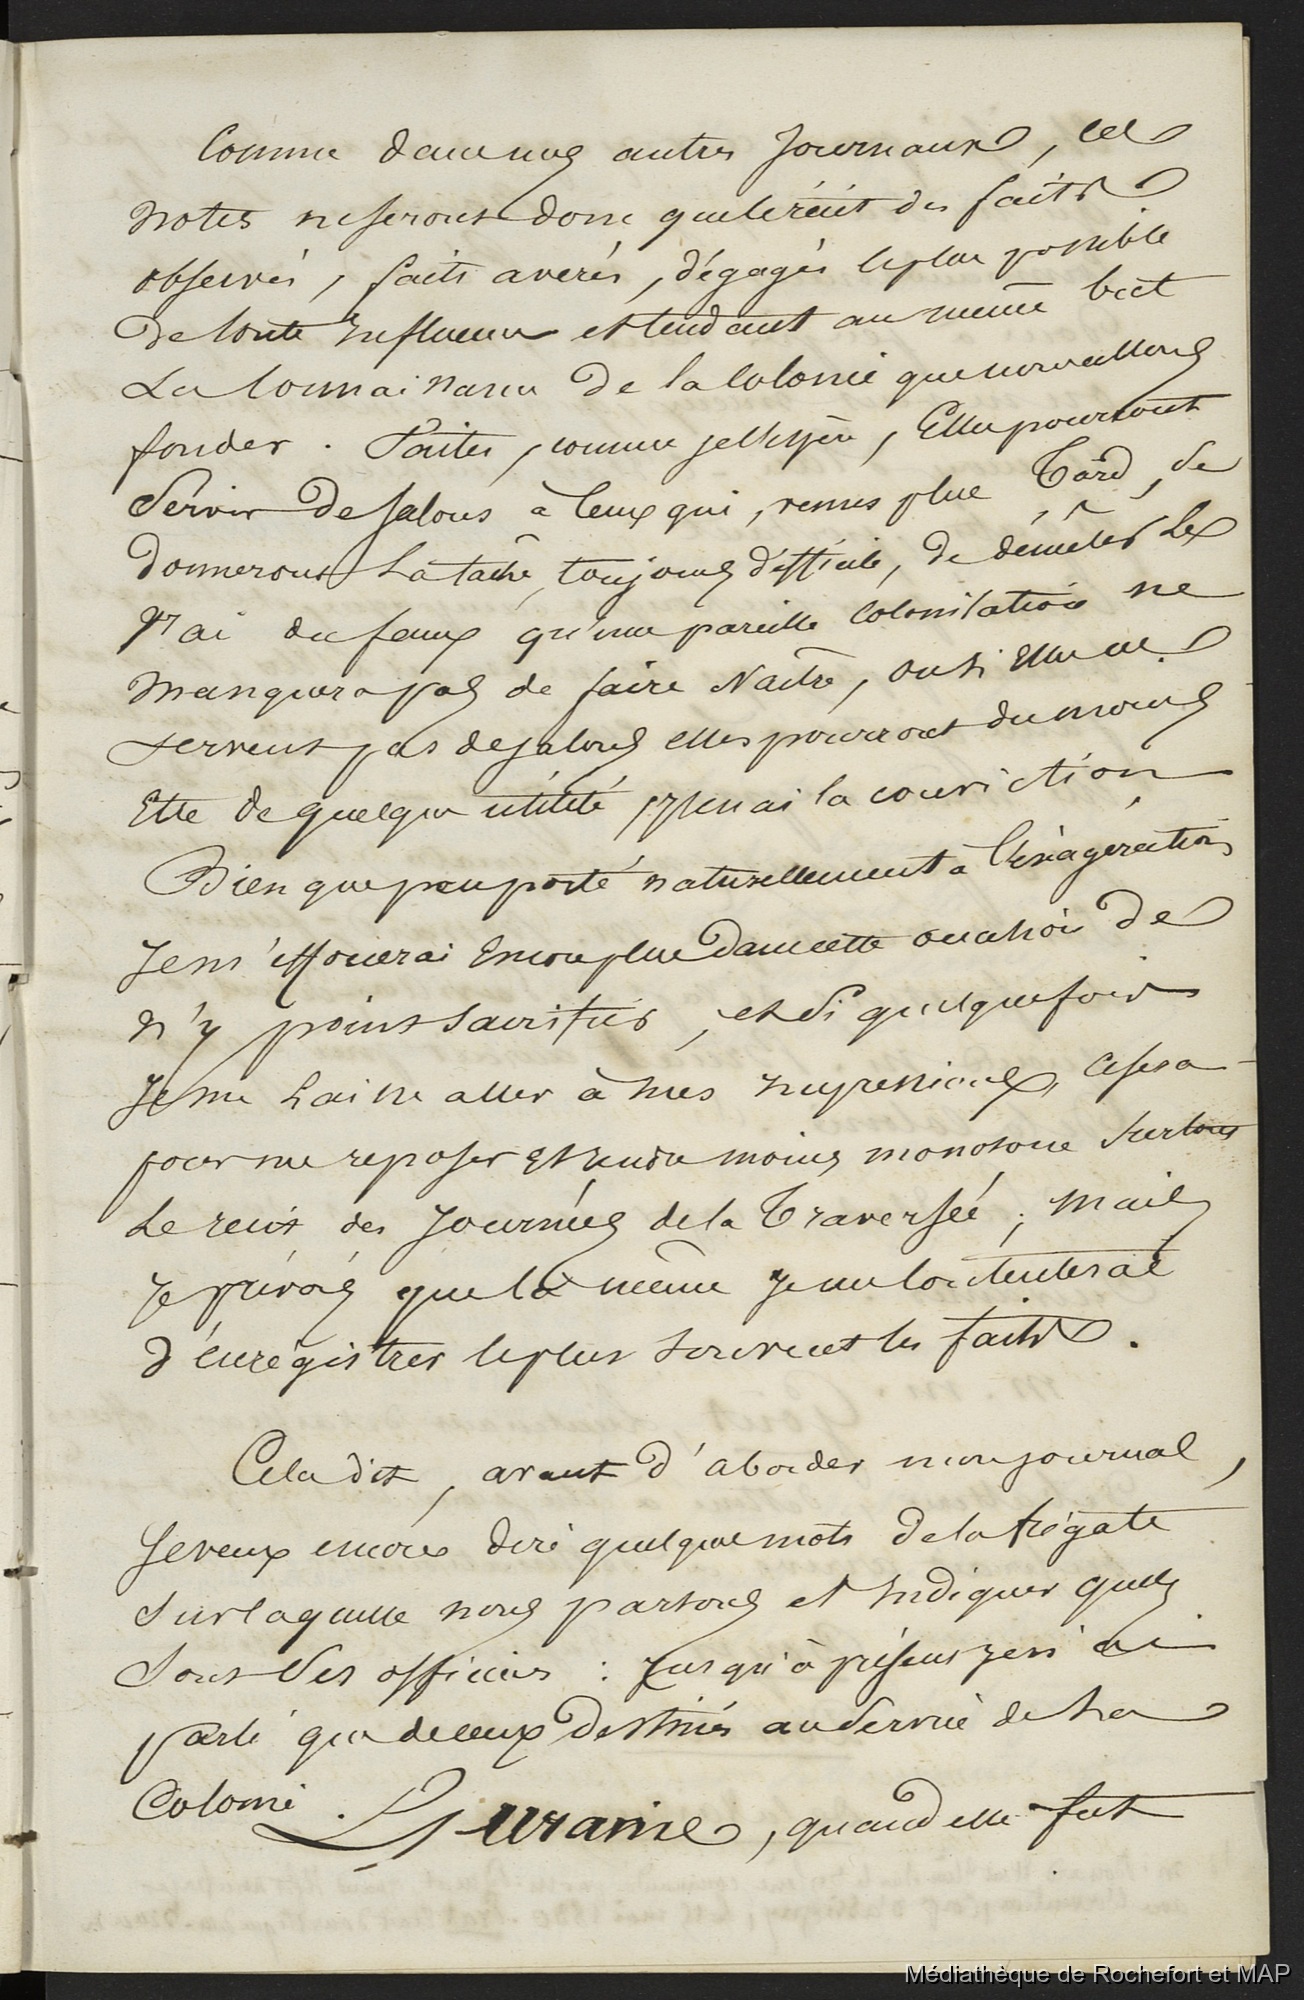 Comme dans mes autres Journaux, ces
notes ne seront donc que le récit des faits
observés, faits avérés, dégagés le plus possible
De toute Influence et tendant au même but
La Connaissance De la Colonie que nous allons
fonder. Faites, comme je l'espère, Elles pourront
Servir De jalons à Ceux qui, venus plus Tard, se
Donneront La tâche, toujours difficile, De démêler Le
Vrai du faux qu'une pareille Colonisation ne
Manquera pas de faire Naître, ou si Elles ne
servent pas de jalons elles pourront du moins
Etre de quelque utilité, j'en ai la conviction
Bien que peu porté naturellement à l'éxagération,
Je m'efforcerai Encore plus Dans cette occasion De
N'y point sacrifier, et si quelquefois
Je me Laisse aller à mes Impressions, ce sera
pour me reposer Et rendre moins monotone Surtout
Le récit des Journées de la Traversée; Mais
Je prévois que là même Je me contenterai
D'enrégistrer le plus souvent les faits.
Cela dit, avant D'aborder mon journal,
Je veux encore dire quelques mots De la frégate
Sur laquelle nous partons et Indiquer quels
Sont Ses officiers : Jusqu'à présent je n'ai
parlé que de ceux Destinés au Service de La
Colonie. L'Uranie, quand elle fut
Médiathèque de Rochefort et MAP